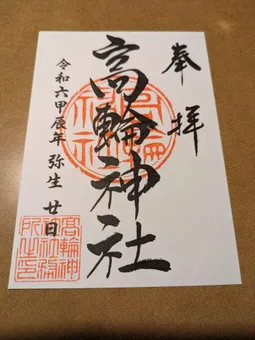 奉拝
高輪神社
令和六甲辰年 弥生 廿日
高輪神
社社務
所之印